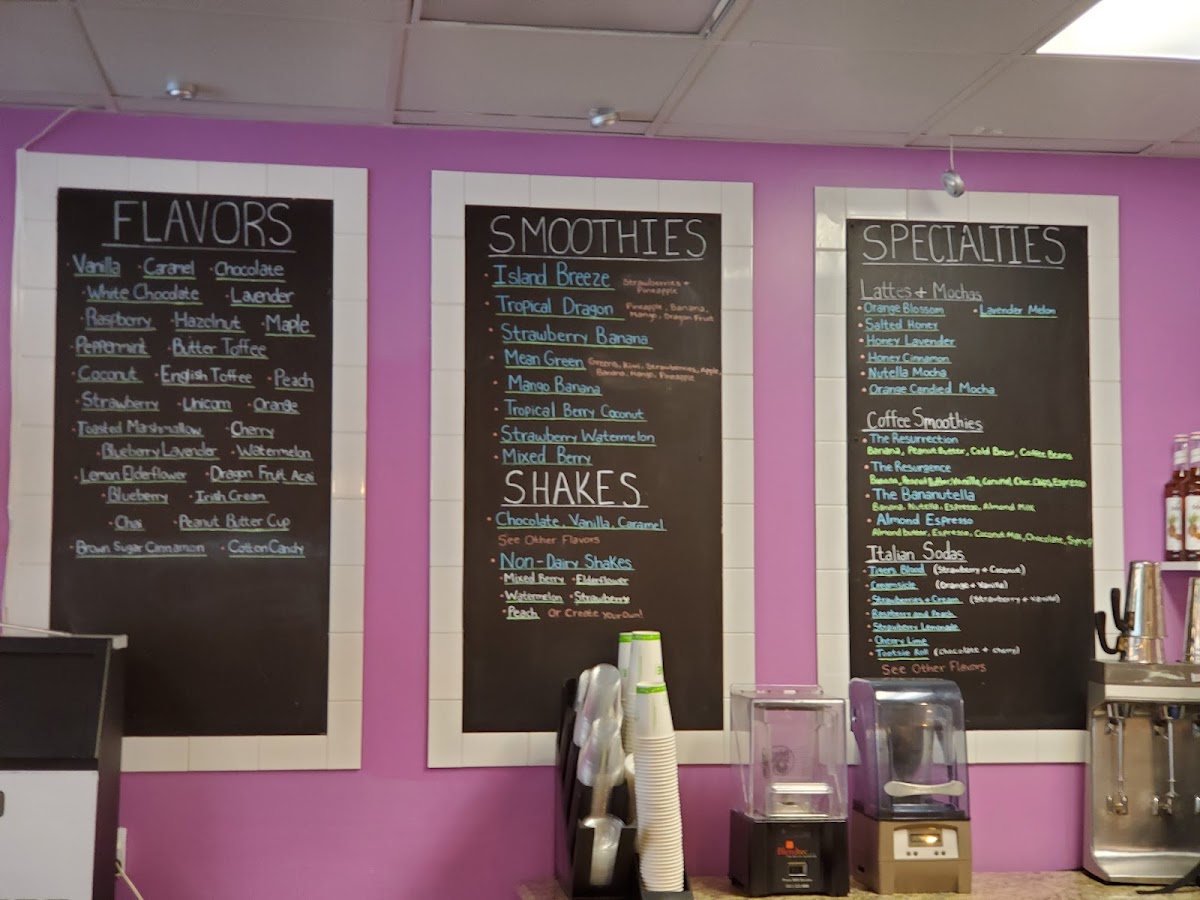 FLAVORS
· Vanilla · Caramel · Chocolate
· White Chocolate · Lavender
· Raspberry · Hazelnut · Maple
· Peppermint · Butter Toffee
· Coconut · English Toffee · Peach
· Strawberry · Unicorn · Orange
· Toasted Marshmallow · Cherry
· Blueberry Lavender · Watermelon
· Lemon Elderflower · Dragon Fruit Acai
· Blueberry · Irish Cream
· Chai · Peanut Butter Cup
· Brown Sugar Cinnamon · Cotton Candy
SMOOTHIES
· Island Breeze Strawberries +
Pineapple
· Tropical Dragon Pineapple, Banana,
Mango, Dragon Fruit
· Strawberry Banana
· Mean Green Greens, Kiwi, Strawberries, Apple,
Banana, Mango, Pineapple
· Mango Banana
· Tropical Berry Coconut
· Strawberry Watermelon
· Mixed Berry
SHAKES
· Chocolate, Vanilla, Caramel
See Other Flavors
· Non-Dairy Shakes
· Mixed Berry · Elderflower
· Watermelon · Strawberry
· Peach Or Create Your Own!
SPECIALTIES
Lattes + Mochas
· Orange Blossom · Lavender Melon
· Salted Honey
· Honey Lavender
· Honey Cinnamon
· Nutella Mocha
· Orange Candied Mocha
Coffee Smoothies
· The Resurrection
Banana, Peanut Butter, Cold Brew, Coffee Beans
· The Resurgence
Banana, Peanut Butter, Vanilla, Caramel, Choc. Chips, Espresso
· The Bananutella
Banana, Nutella, Espresso, Almond Milk
· Almond Espresso
Almond butter, Espresso, Coconut Milk, Chocolate, Syrup
Italian Sodas
· Tigers Blood (Strawberry + Coconut)
· Creamsicle (Orange + Vanilla)
· Strawberries + Cream (Strawberry + Vanilla)
· Raspberry and Peach
· Strawberry Lemonade
· Cherry Lime
· Tootsie Roll (Chocolate + Cherry)
See Other Flavors
Blendtec